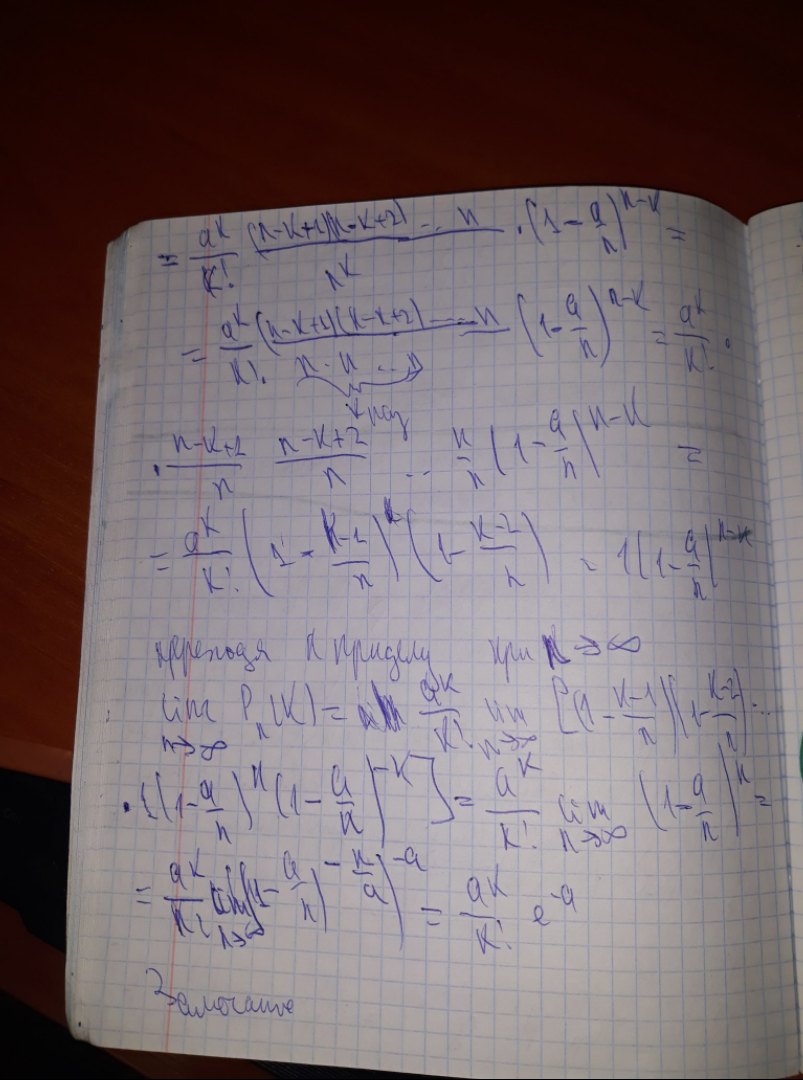 = a^k/k! (n-k+1)(n-k+2) ... n / n^k · (1 - a/n)^{n-k} =
= a^k/k! · (n-k+1)(n-k+2) ... n / n · n ... n (1 - a/n)^{n-k} = a^k/k! ·
k раз
· n-k+1/n n-k+2/n ... n/n (1 - a/n)^{n-k} =
= a^k/k! (1 - k-1/n) (1 - k-2/n) = 1 (1 - a/n)^{n-k}
переходя к приделу при n → ∞
lim n→∞ P_n(k) = a^k/k! lim n→∞ [(1 - k-1/n)(1 - k-2/n) ...
· ((1 - a/n)^n (1 - a/n)^{-k}] = a^k/k! lim n→∞ (1 - a/n)^n =
= a^k/k! lim n→∞ ((1 - a/n)^{-n/a})^{-a} = a^k/k! e^{-a}
Замечание